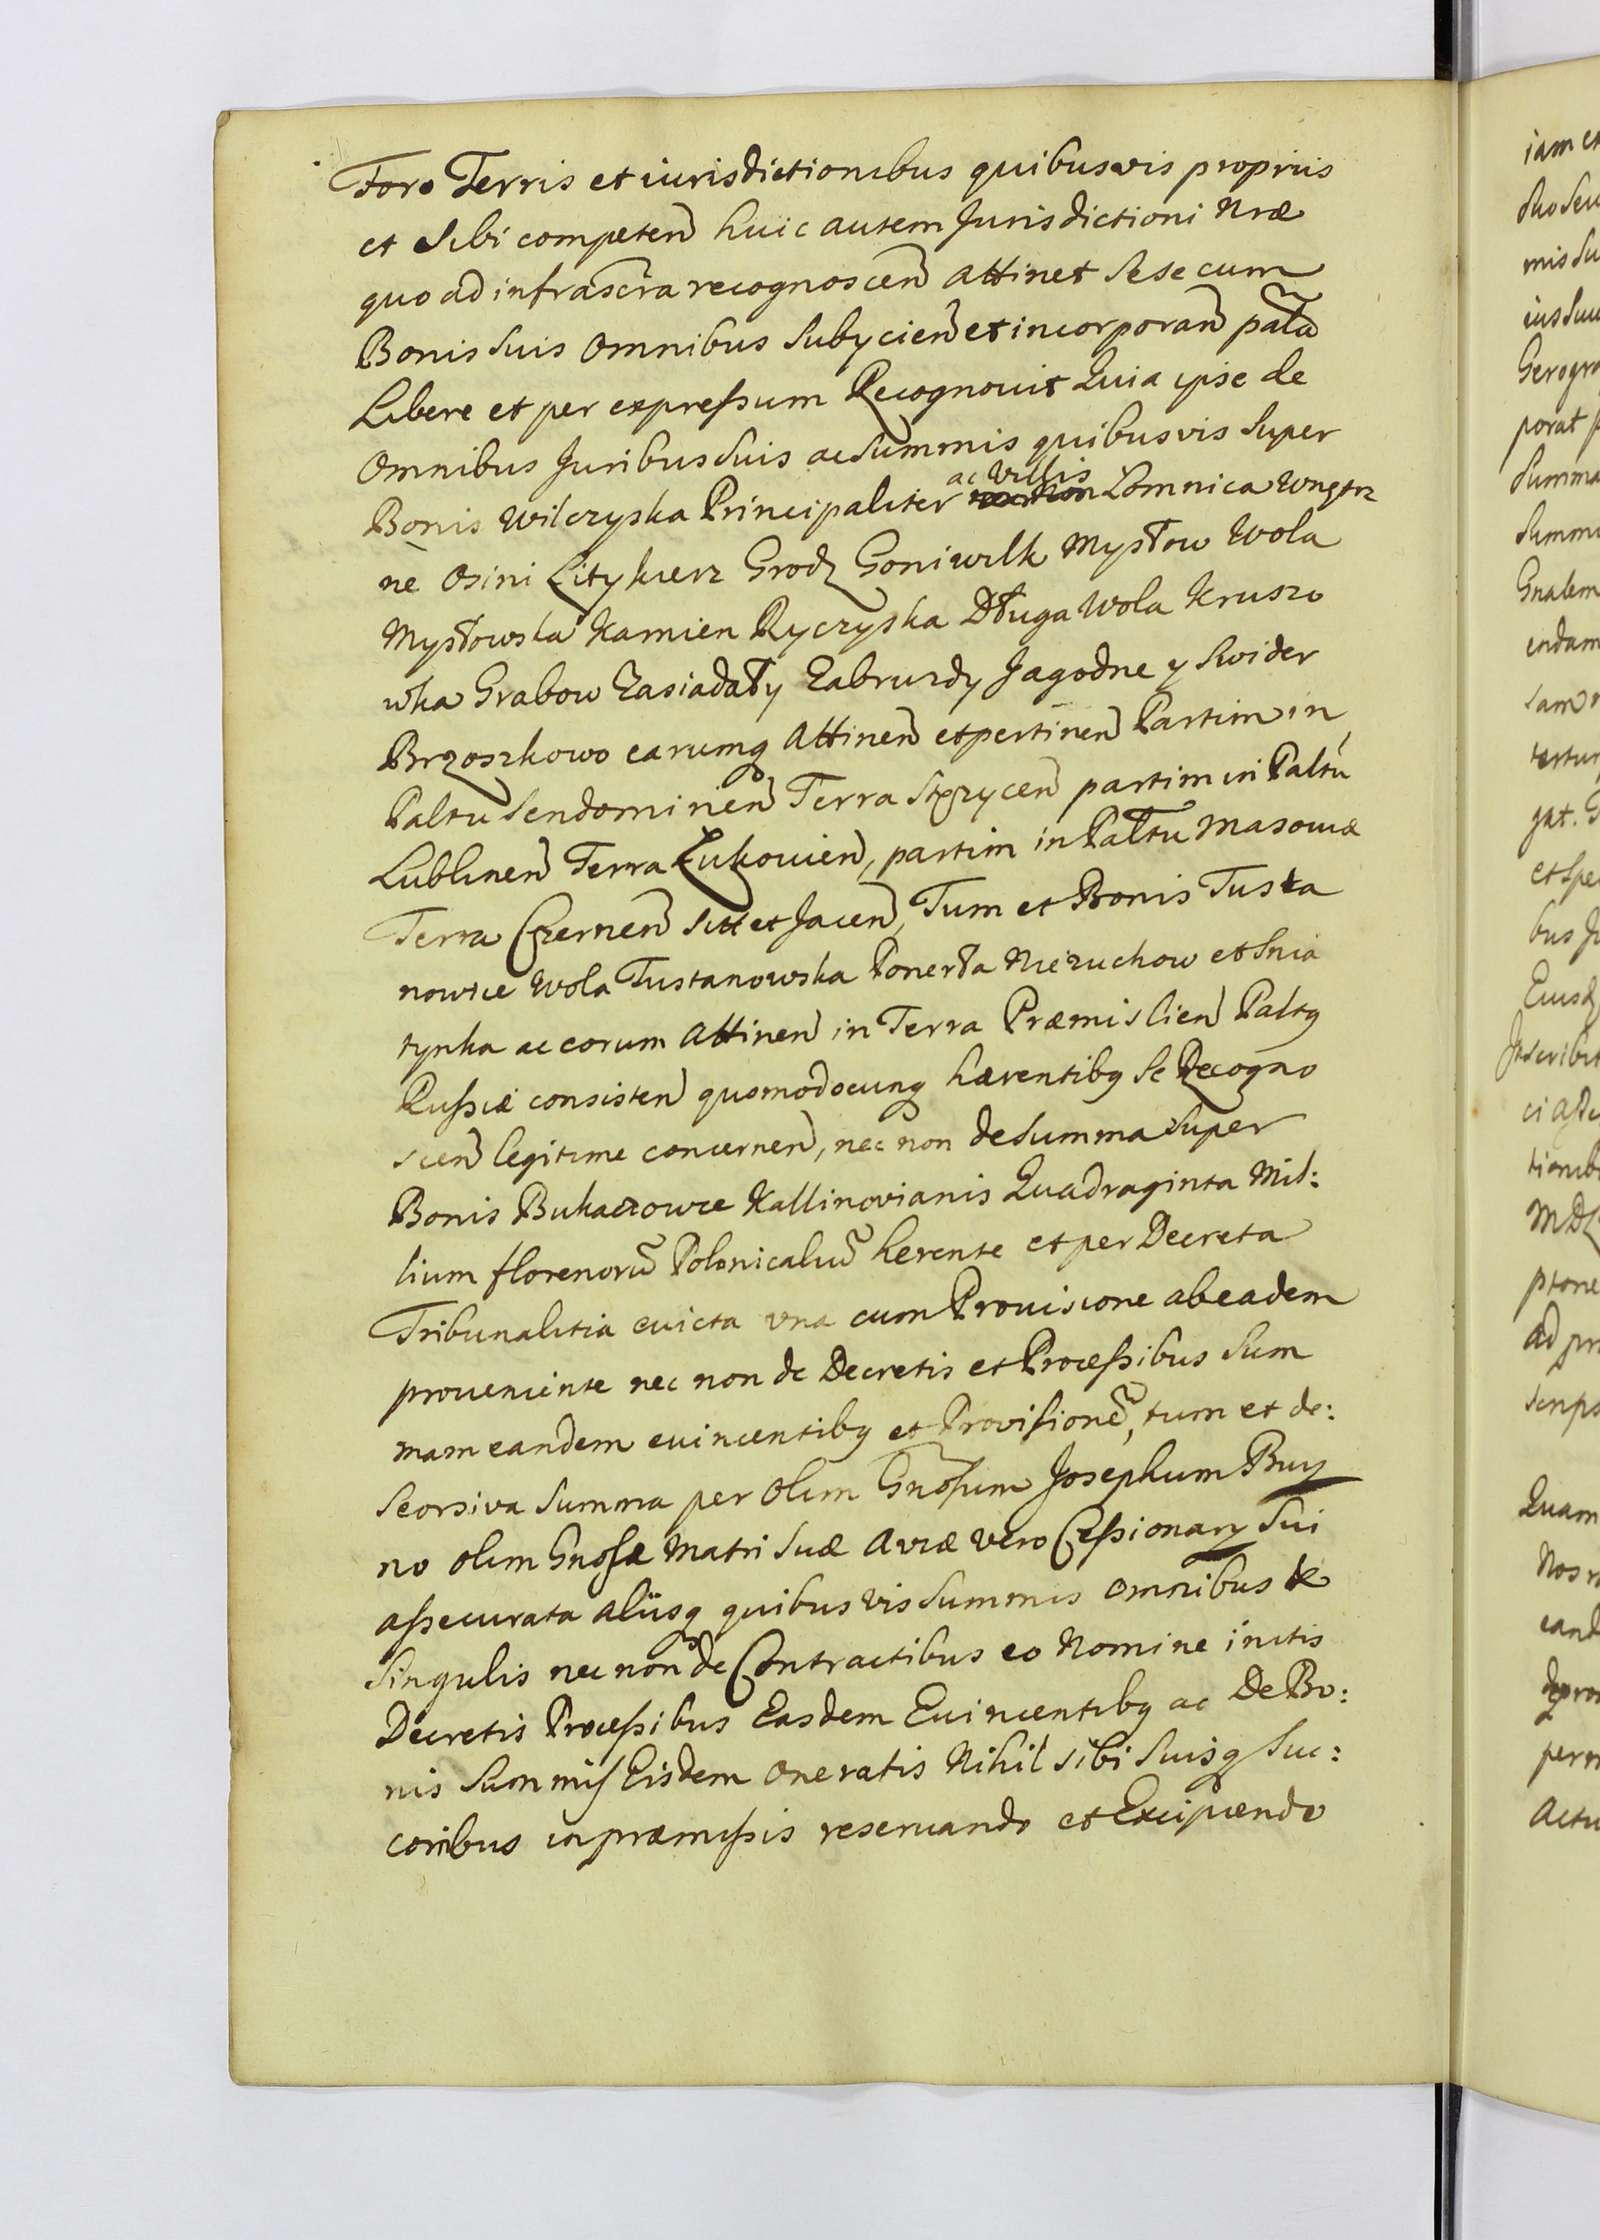 Foro Terris et iurisdictionibus quibusvis propriis
et sibi competen huic autem Jurisdictioni Nræ
quo ad infrascra recognoscen attinet sese cum
Bonis suis omnibus subycien et incorporan palã
Libere et per expressum Recognouit Quia ipse de
omnibus Juribus suis ac summis quibusvis super
ac Villis
Bonis Wilczyska Principaliter Lomnica Wnętrz
ne Osini Zitykierz Grodz Goniwilk Mysłow Wola
Mysłowska Kamien Ryczyska Długa Wola Kruszo
wka Grabow Zasiadały Zabruzdy Jagodne y Swider
Brzoszkowo earumq attinen et pertinen Partim in
Paltu Sendomirien Terra Stęzycen partim in Paltu
Lublinen Terra Łukouien, partim in Paltu Masouiæ
Terra Czernen sitt et Jacen, Tum et Bonis Tusta
nowice Wola Tustanowska Ponerła Niezuchow et Snia
tynka ac eorum attinen in Terra Præmislien Paltq
Russiæ consisten quomodocunq hærentibq se Recogno
scen legitime concernen, nec non de summa super
Bonis Bukaczowce Kallinovianis Quadraginta Mil:
lium florenorũ Polonicaliũ herente et per Decreta
Tribunalitia euicta vna cum Prouisione ab eadem
proueniente nec non de Decretis et Processibus sum
mam eandem euincentibq et Provisionẽ, tum et de:
seorsiva summa per olim Gnosum Josephum Buy
no olim Gnosæ Matri suæ Aviæ vero Cessionary sui
assecurata aliisq quibus vis summis omnibus et
singulis nec non de Contractibus eo Nomine initis
Decretis Processibus Easdem Euincentibq ac De Bo:
nis summis Eisdem oneratis Nihil sibi suisq suc:
coribus in præmissis reseruando et Excipiendo
iam et
mis su
ius suu
porat
summa
endam
bus
ci
ptone
ad
Quam
Nos
eand
actu